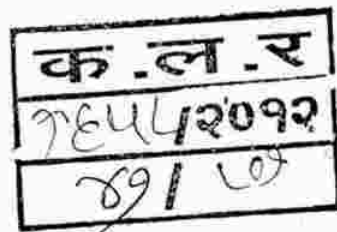 क.ल.र
१६५५/२०१२
४१/